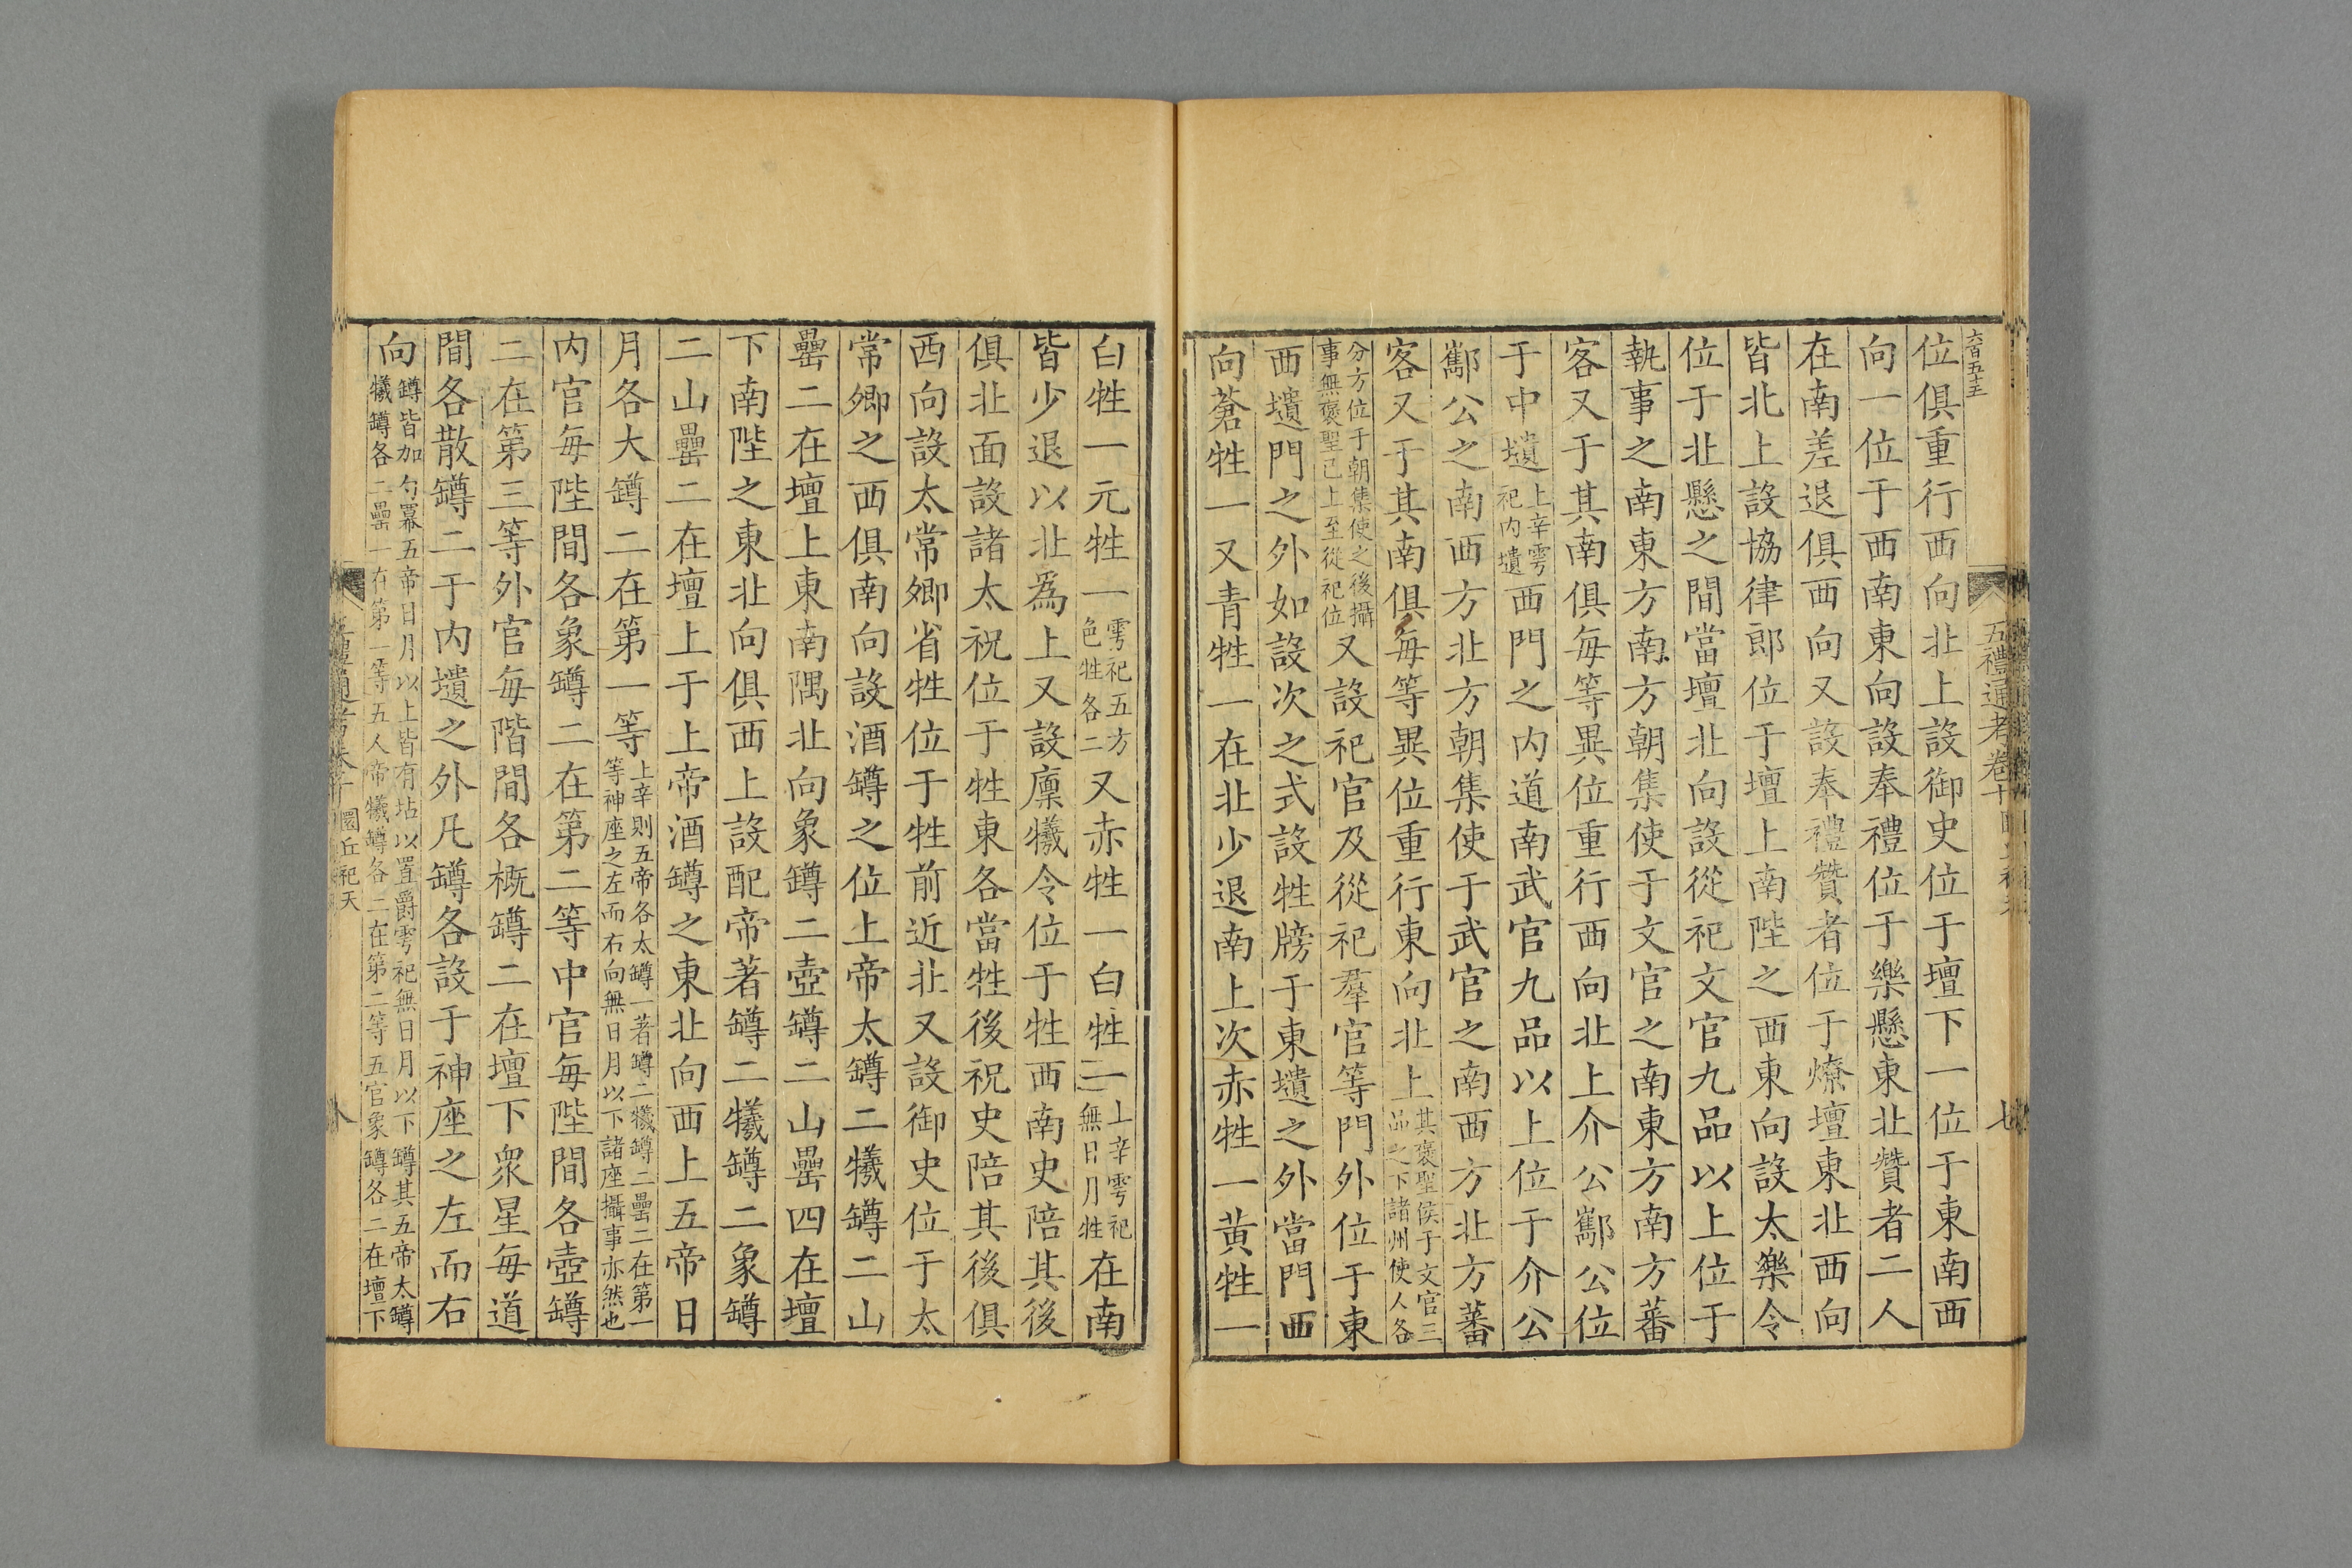 六百五十三
位俱重行西向北上設御史位于壇下一位于東南西
向一位于西南東向設奉禮位于樂懸東北贊者二人
在南差退俱西向又設奉禮贊者位于燎壇東北西向
皆北上設協律郎位于壇上南陛之西東向設太樂令
位于北懸之間當壇北向設從祀文官九品以上位于
執事之南東方南方朝集使于文官之南東方南方蕃
客又于其南俱每等異位重行西向北上介公酅公位
于中壝上辛雩祀内壝西門之内道南武官九品以上位于介公
酅公之南西方北方朝集使于武官之南西方北方蕃
客又于其南俱每等異位重行東向北上其褒聖侯于文官三品之下諸州使人各
分方位于朝集使之後攝事無褒聖已上至從祀位又設祀官及從祀羣官等門外位于東
西壝門之外如設次之式設牲牓于東壝之外當門西
向蒼牲一又青牲一在北少退南上次赤牲一黃牲一
五禮通考卷十
七
白牲一元牲一雩祀五方色牲各二又赤牲一白牲一上辛雩祀無日月牲在南
皆少退以北為上又設廩犧令位于牲西南史陪其後
俱北面設諸太祝位于牲東各當牲後祝史陪其後俱
西向設太常卿省牲位于牲前近北又設御史位于太
常卿之西俱南向設酒罇之位上帝太罇二犧罇二山
罍二在壇上東南隅北向象罇二壺罇二山罍四在壇
下南陛之東北向俱西上設配帝著罇二犧罇二象罇
二山罍二在壇上于上帝酒罇之東北向西上五帝日
月各大罇二在第一等上辛則五帝各太罇一著罇二犧罇二罍二在第一等神座之左而右向無日月以下諸座攝事亦然也
内官每陛間各象罇二在第二等中官每陛間各壺罇
二在第三等外官每階間各概罇二在壇下眾星每道
間各散罇二于内壝之外凡罇各設于神座之左而右
向罇皆加勺冪五帝日月以上皆有坫以置爵雩祀無日月以下罇其五帝太罇犧罇各二罍一在第一等五人帝犧罇各二在第二等五官象罇各二在壇下
圜丘祀天